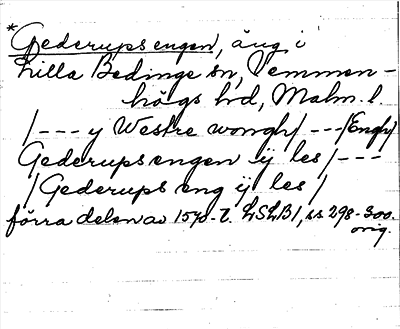 *Gederupsengen, äng i
Lilla Bedinge sn, Vemmen-
högs hd, Malm. l.
/--- y Westre wongh/ ---/Engh/
Gederupsengen ij les/---
/Gederups eng ij les/
förra delen av 1570-t. LSLB1, ss 298-300.
orig.